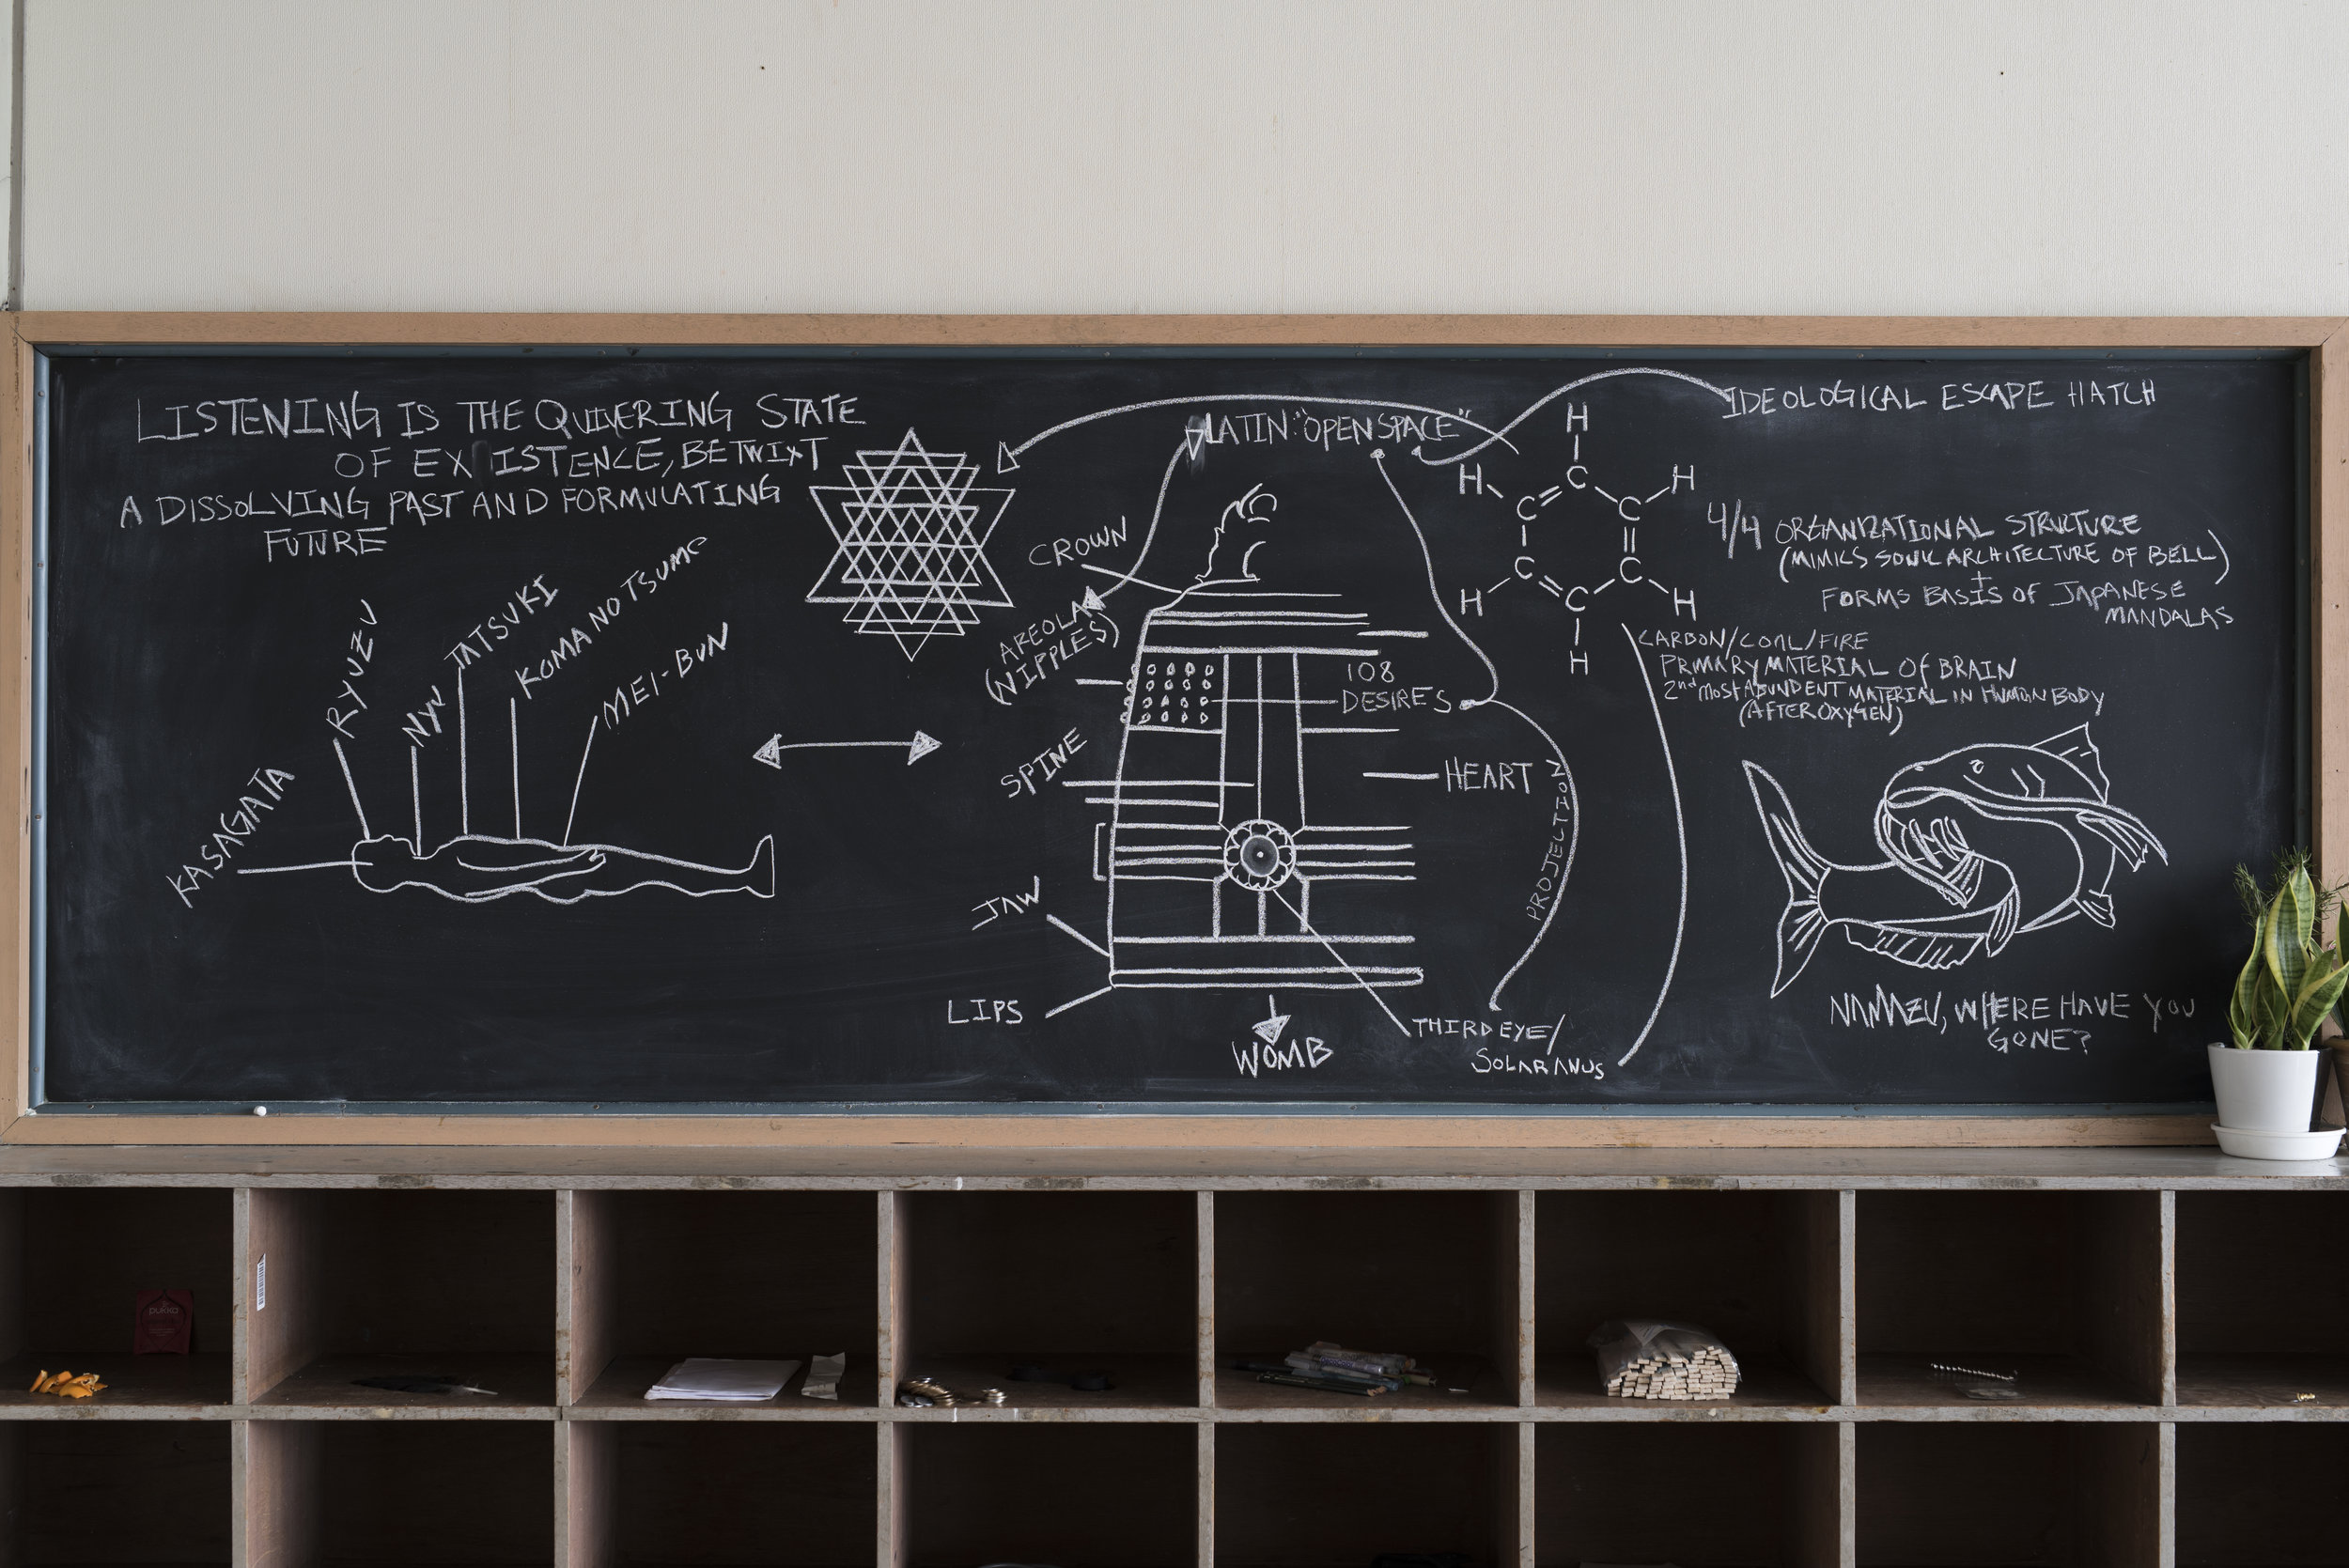 LISTENING IS THE QUIVERING STATE
OF EXISTENCE, BETWIXT
A DISSOLVING PAST AND FORMULATING
FUTURE
KASAGATA
RYUZU
NYU
TATSUKI
KOMA NO TSUME
MEI-BUN
CROWN
AREOLA
(NIPPLES)
SPINE
JAW
LIPS
WOMB
LATIN: "OPEN SPACE"
108
DESIRES
HEART
PROJECTION
THIRD EYE/
SOLAR ANUS
H
H
C
H
C
C
C
C
H
C
H
H
IDEOLOGICAL ESCAPE HATCH
4/4 ORGANIZATIONAL STRUCTURE
(MIMICS SONIC ARCHITECTURE OF BELL)
+
FORMS BASIS OF JAPANESE
MANDALAS
CARBON/COAL/FIRE
PRIMARY MATERIAL OF BRAIN
2nd MOST ABUNDENT MATERIAL IN HUMAN BODY
(AFTER OXYGEN)
NAMAZU, WHERE HAVE YOU
GONE?
pukka